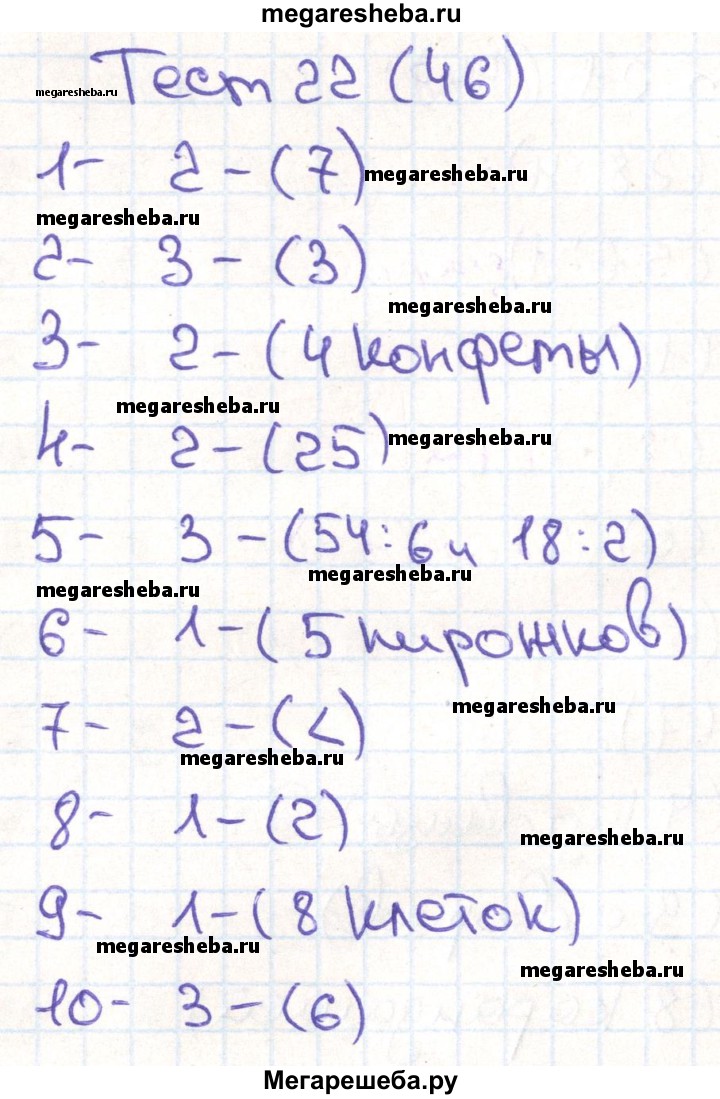 megaresheba.ru
Тест 22 (46)
megaresheba.ru
1- 2 - (7)
megaresheba.ru
megaresheba.ru
2- 3 - (3)
megaresheba.ru
3- 2 - (4 конфеты)
megaresheba.ru
4- 2 - (25)
megaresheba.ru
5- 3 - (54:6 и 18:2)
megaresheba.ru
megaresheba.ru
6- 1 - (5 пирожков)
megaresheba.ru
7- 2 - (<)
megaresheba.ru
8- 1 - (2)
megaresheba.ru
9- 1 - (8 клеток)
megaresheba.ru
megaresheba.ru
10- 3 - (6)
Мегарешеба.ру